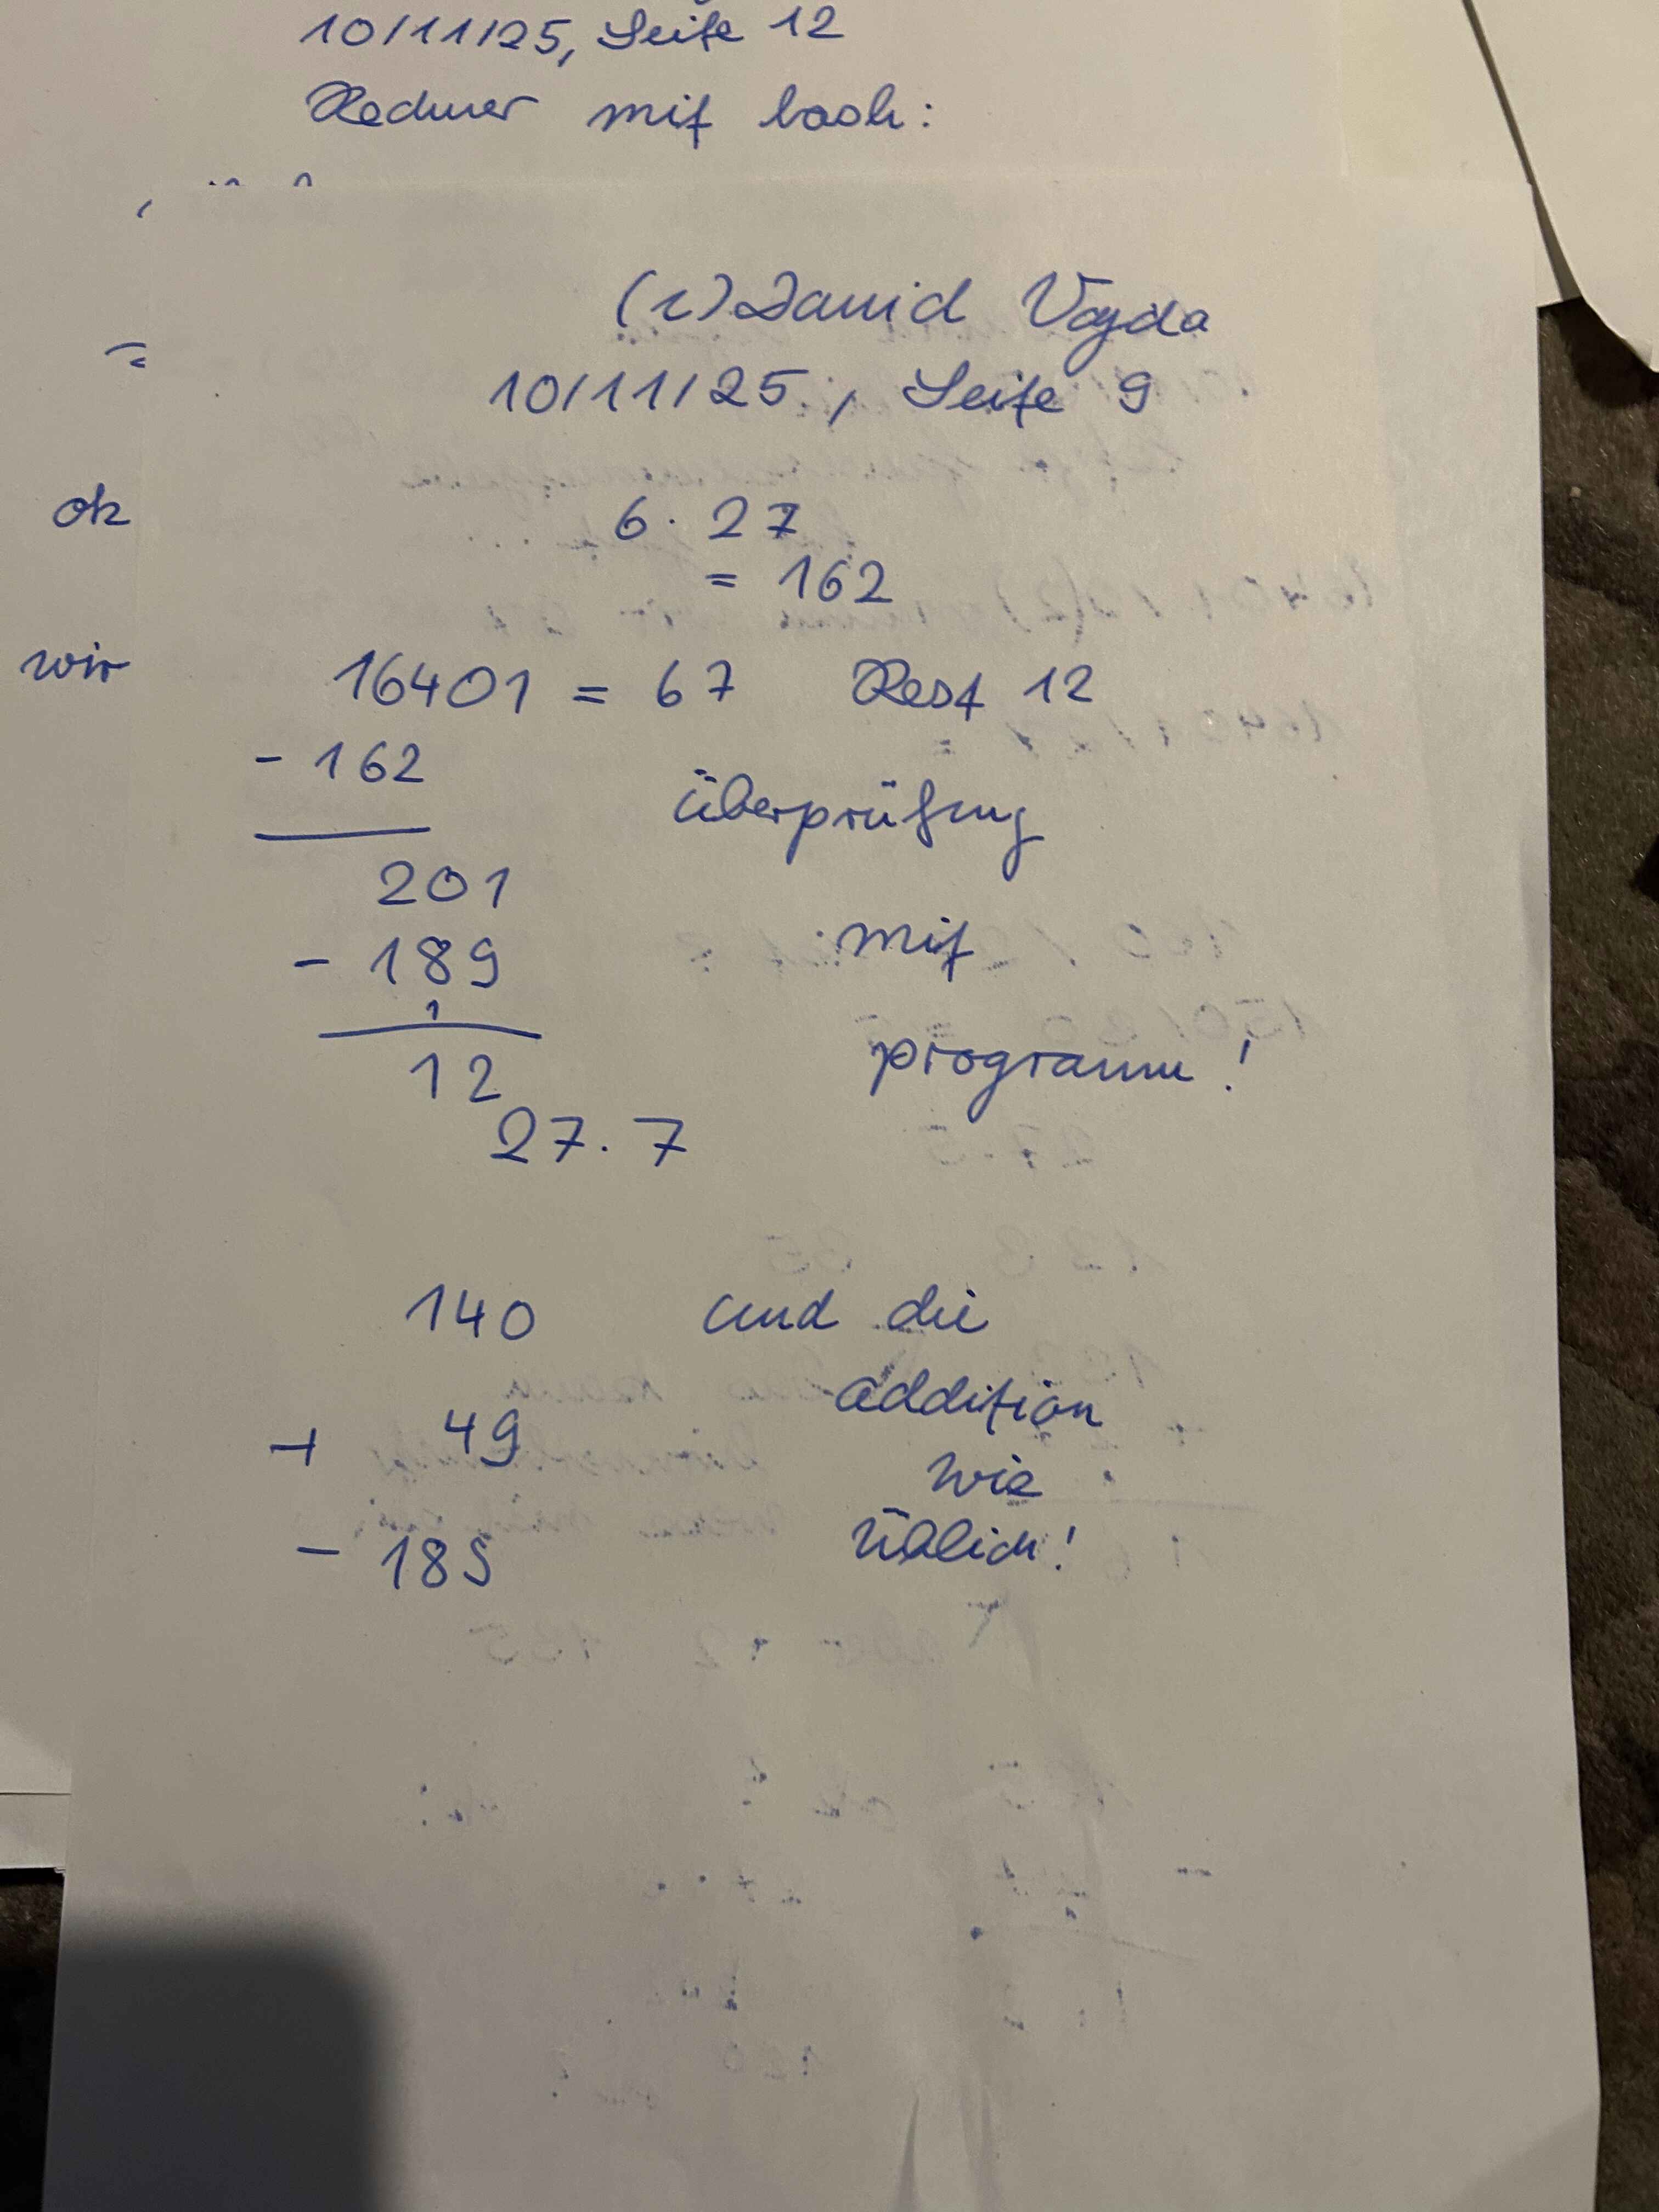 10/11/25, Seite 12
Rechner mit bash:
(c) David Vajda
10/11/25, Seite 9
ok
6 · 27
= 162
wir
16401 = 67 Rest 12
- 162
überprüfung
201
mit
- 189
1
programm!
12
27 · 7
140 und die
addition
+ 49
wie
- 189
üblich!